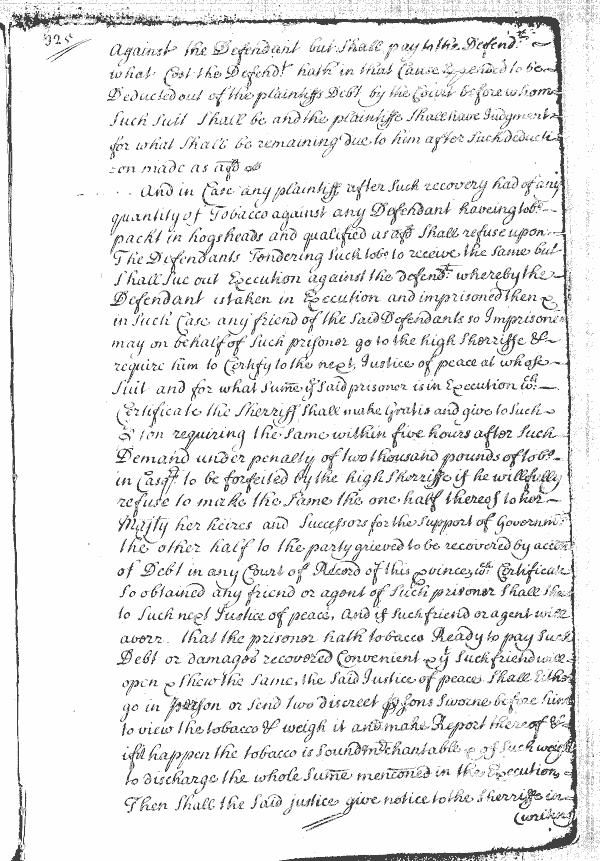 325
Against the Defendant but Shall pay to the Defendt
what Cost the Defendt hath in that Cause Expended to be
Deducted out of the plaintiffs Debt by the Court before whome
Such Suit Shall be and the plaintiffe Shall have Judgment
for what Shall be remaining due to him after Such deducti
=on made as afd
And in Case any plaintiff after Such recovery had of any
quantity of Tobacco against any Defendant haveing tobo
packt in hogsheads and qualified as afd Shall refuse upon
The Defendants Tendering Such tobo to receive the Same but
Shall Sue out Execution against the defendt whereby the
Defendant is taken in Execution and imprisoned then
in Such Case any friend of the Said Defendants so Imprisoned
may on behalf of Such prisoner go to the high Sherriffe &
require him to Certify to the next Justice of peace at whose
Suit and for what Sume ye Said prisoner is in Execution wch
Certificate the Sherriff Shall make Gratis and give to Such
pson requiring the Same within five hours after Such
Demand under penalty of two thousand pounds of tobo
in Casqt to be forfeited by the high Sherriffe if he willfully
refuse to make the Same the one half thereof to her
Majty her heires and Successors for the Support of Governmt
the other half to the party grieved to be recovered by accon
of Debt in any Court of Record of this province, wch Certificate
So obtained any friend or agent of Such prisoner Shall shew
to Such next Justice of peace, And if Such friend or agent will
averr that the prisoner hath tobacco Ready to pay Such
Debt or damages recovered Convenient & if Such friend will
open & Shew the Same, the Said Justice of peace Shall Either
go in person or Send two discreet psons Sworne before him
to view the tobacco & weigh it and make Report thereof &
if it happen the tobacco is Sound merchantable & of Such weight
to discharge the whole Sume mencioned in the Execution
Then Shall the Said justice give notice to the Sherriffe in
(writing